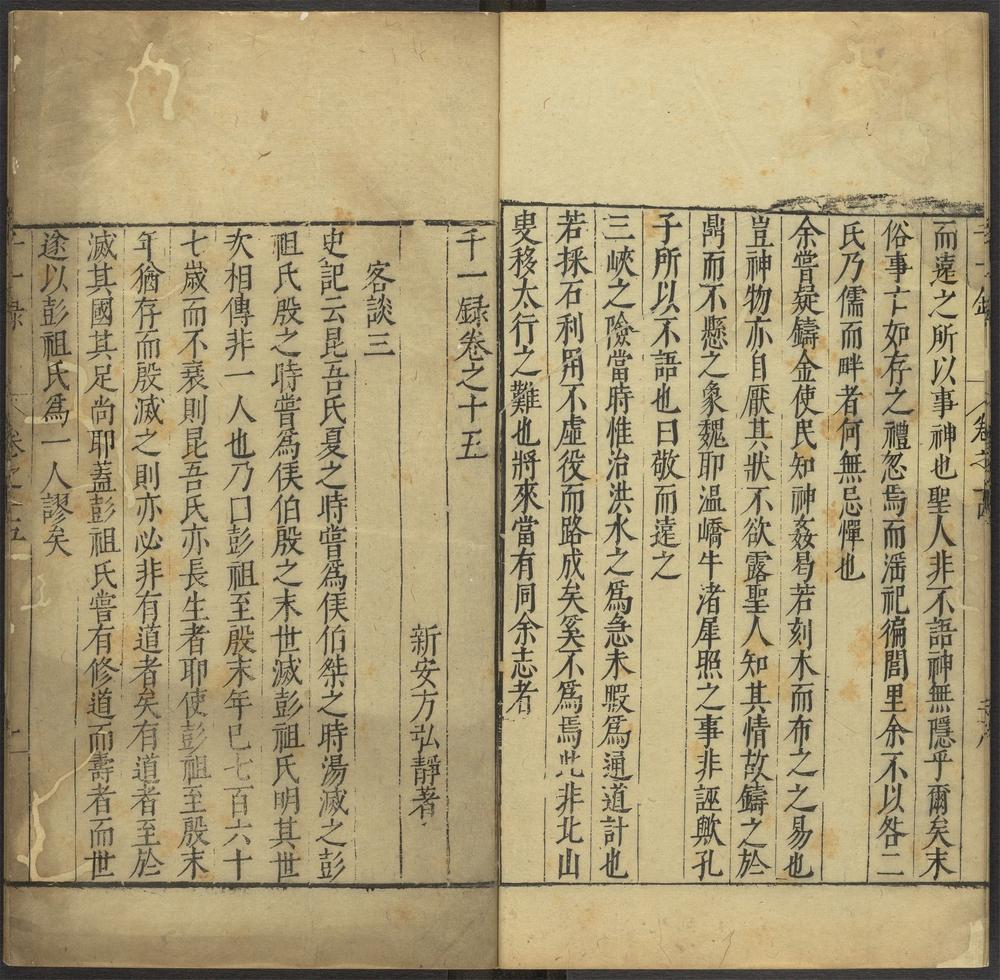 而遠之所以事神也聖人非不語神無隱乎爾矣末
俗事亡如存之禮忽焉而滛祀徧閭里余不以咎二
氏乃儒而畔者何無忌憚也
余嘗疑鑄金使民知神姦曷若刻木而布之之易也
豈神物亦自厭其狀不欲露聖人知其情故鑄之於
鼎而不懸之象魏耶温嶠牛渚犀照之事非誣歟孔
子所以不語也曰敬而遠之
三峽之險當時惟治洪水之爲急未暇爲通道計也
若採石利用不虛役而路成矣奚不爲焉此非北山
叟移太行之難也將來當有同余志者
千一録卷之十五
新安方弘靜著
客談三
史記云昆吾氏夏之時嘗爲侯伯桀之時湯滅之彭
祖氏殷之時嘗爲侯伯殷之末世滅彭祖氏明其世
次相傳非一人也乃曰彭祖至殷末年已七百六十
七歳而不衰則昆吾氏亦長生者耶使彭祖至殷末
年猶存而殷滅之則亦必非有道者矣有道者至於
滅其國其足尚耶蓋彭祖氏嘗有修道而壽者而世
遂以彭祖氏爲一人謬矣